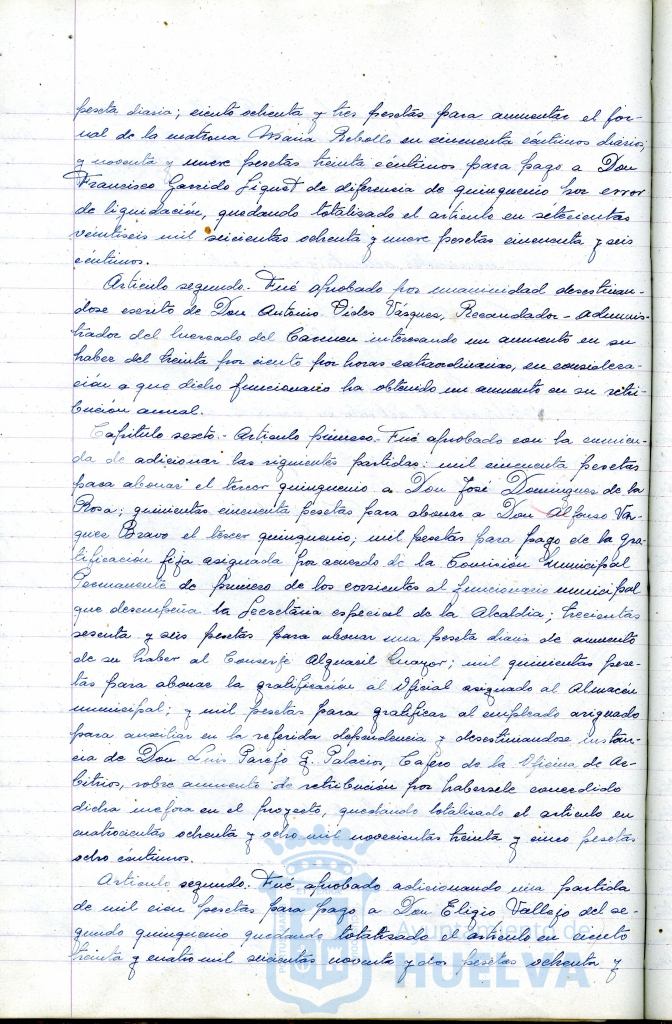 peseta diaria; ciento ochenta y tres pesetas para aumentar el jor-
nal de la matrona Maria Rebollo en cincuenta céntimos diarios;
y noventa y nueve pesetas treinta céntimos para pago a Don
Francisco Garrido Liguet de diferencia de quinquenio por error
de liquidación, quedando totalisado el articulo en setecientas
veintiseis mil seiscientas ochenta y nueve pesetas cincuenta y seis
céntimos.
Articulo segundo.- Fué aprobado por unanimidad desestiman-
dose escrito de Don Antonio Vides Vásques, Recaudador-Adminis-
trador del Mercado del Carmen interesando un aumento en su
haber del treinta por ciento por horas extraordinarias, en considera-
ción a que dicho funcionario ha obtenido un aumento en su retri-
bución anual.
Capitulo sexto.- Articulo primero.- Fué aprobado con la enmien-
da de adicionar las siguientes partidas: mil cincuenta pesetas
para abonar el tercer quinquenio a Don José Domingues de la
Rosa; quinientas cincuenta pesetas para abonar a Don Alfonso Vás-
ques Bravo el tercer quinquenio; mil pesetas para pago de la gra-
tificación fija asignada por acuerdo de la Comisión Municipal
Permanente de primero de los corrientes al funcionario municipal
que desempeña la Secretaria especial de la Alcaldia; trecientas
sesenta y seis pesetas para abonar una peseta diaria de aumento
de su haber al Conserje Alguacil Mayor; mil quinientas pese-
tas para abonar la gratificación al Oficial asignado al Almacén
municipal; y mil pesetas para gratificar al empleado asignado
para auxiliar en la referida dependencia y desestimandose instan-
cia de Don Luis Parejo G. Palacios, Cajero de la Oficina de Ar-
bitrios, sobre aumento de retribución por habersele concedido
dicha mejora en el proyecto, quedando totalisado el articulo en
cuatrocientas ochenta y ocho mil novecientas treinta y cinco pesetas
ocho céntimos.
Articulo segundo.- Fué aprobado adicionando una partida
de mil cien pesetas para pago a Don Eligio Vallejo del se-
gundo quinquenio quedando totalisado el articulo en ciento
treinta y cuatro mil seiscientas noventa y dos pesetas ochenta y
Ayuntamiento de
HUELVA